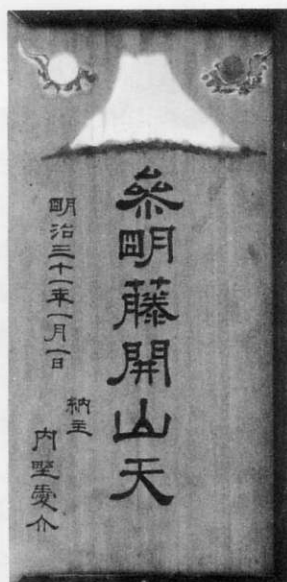 参明藤開山天
明治三十一年一月一日
納主
内野愛介